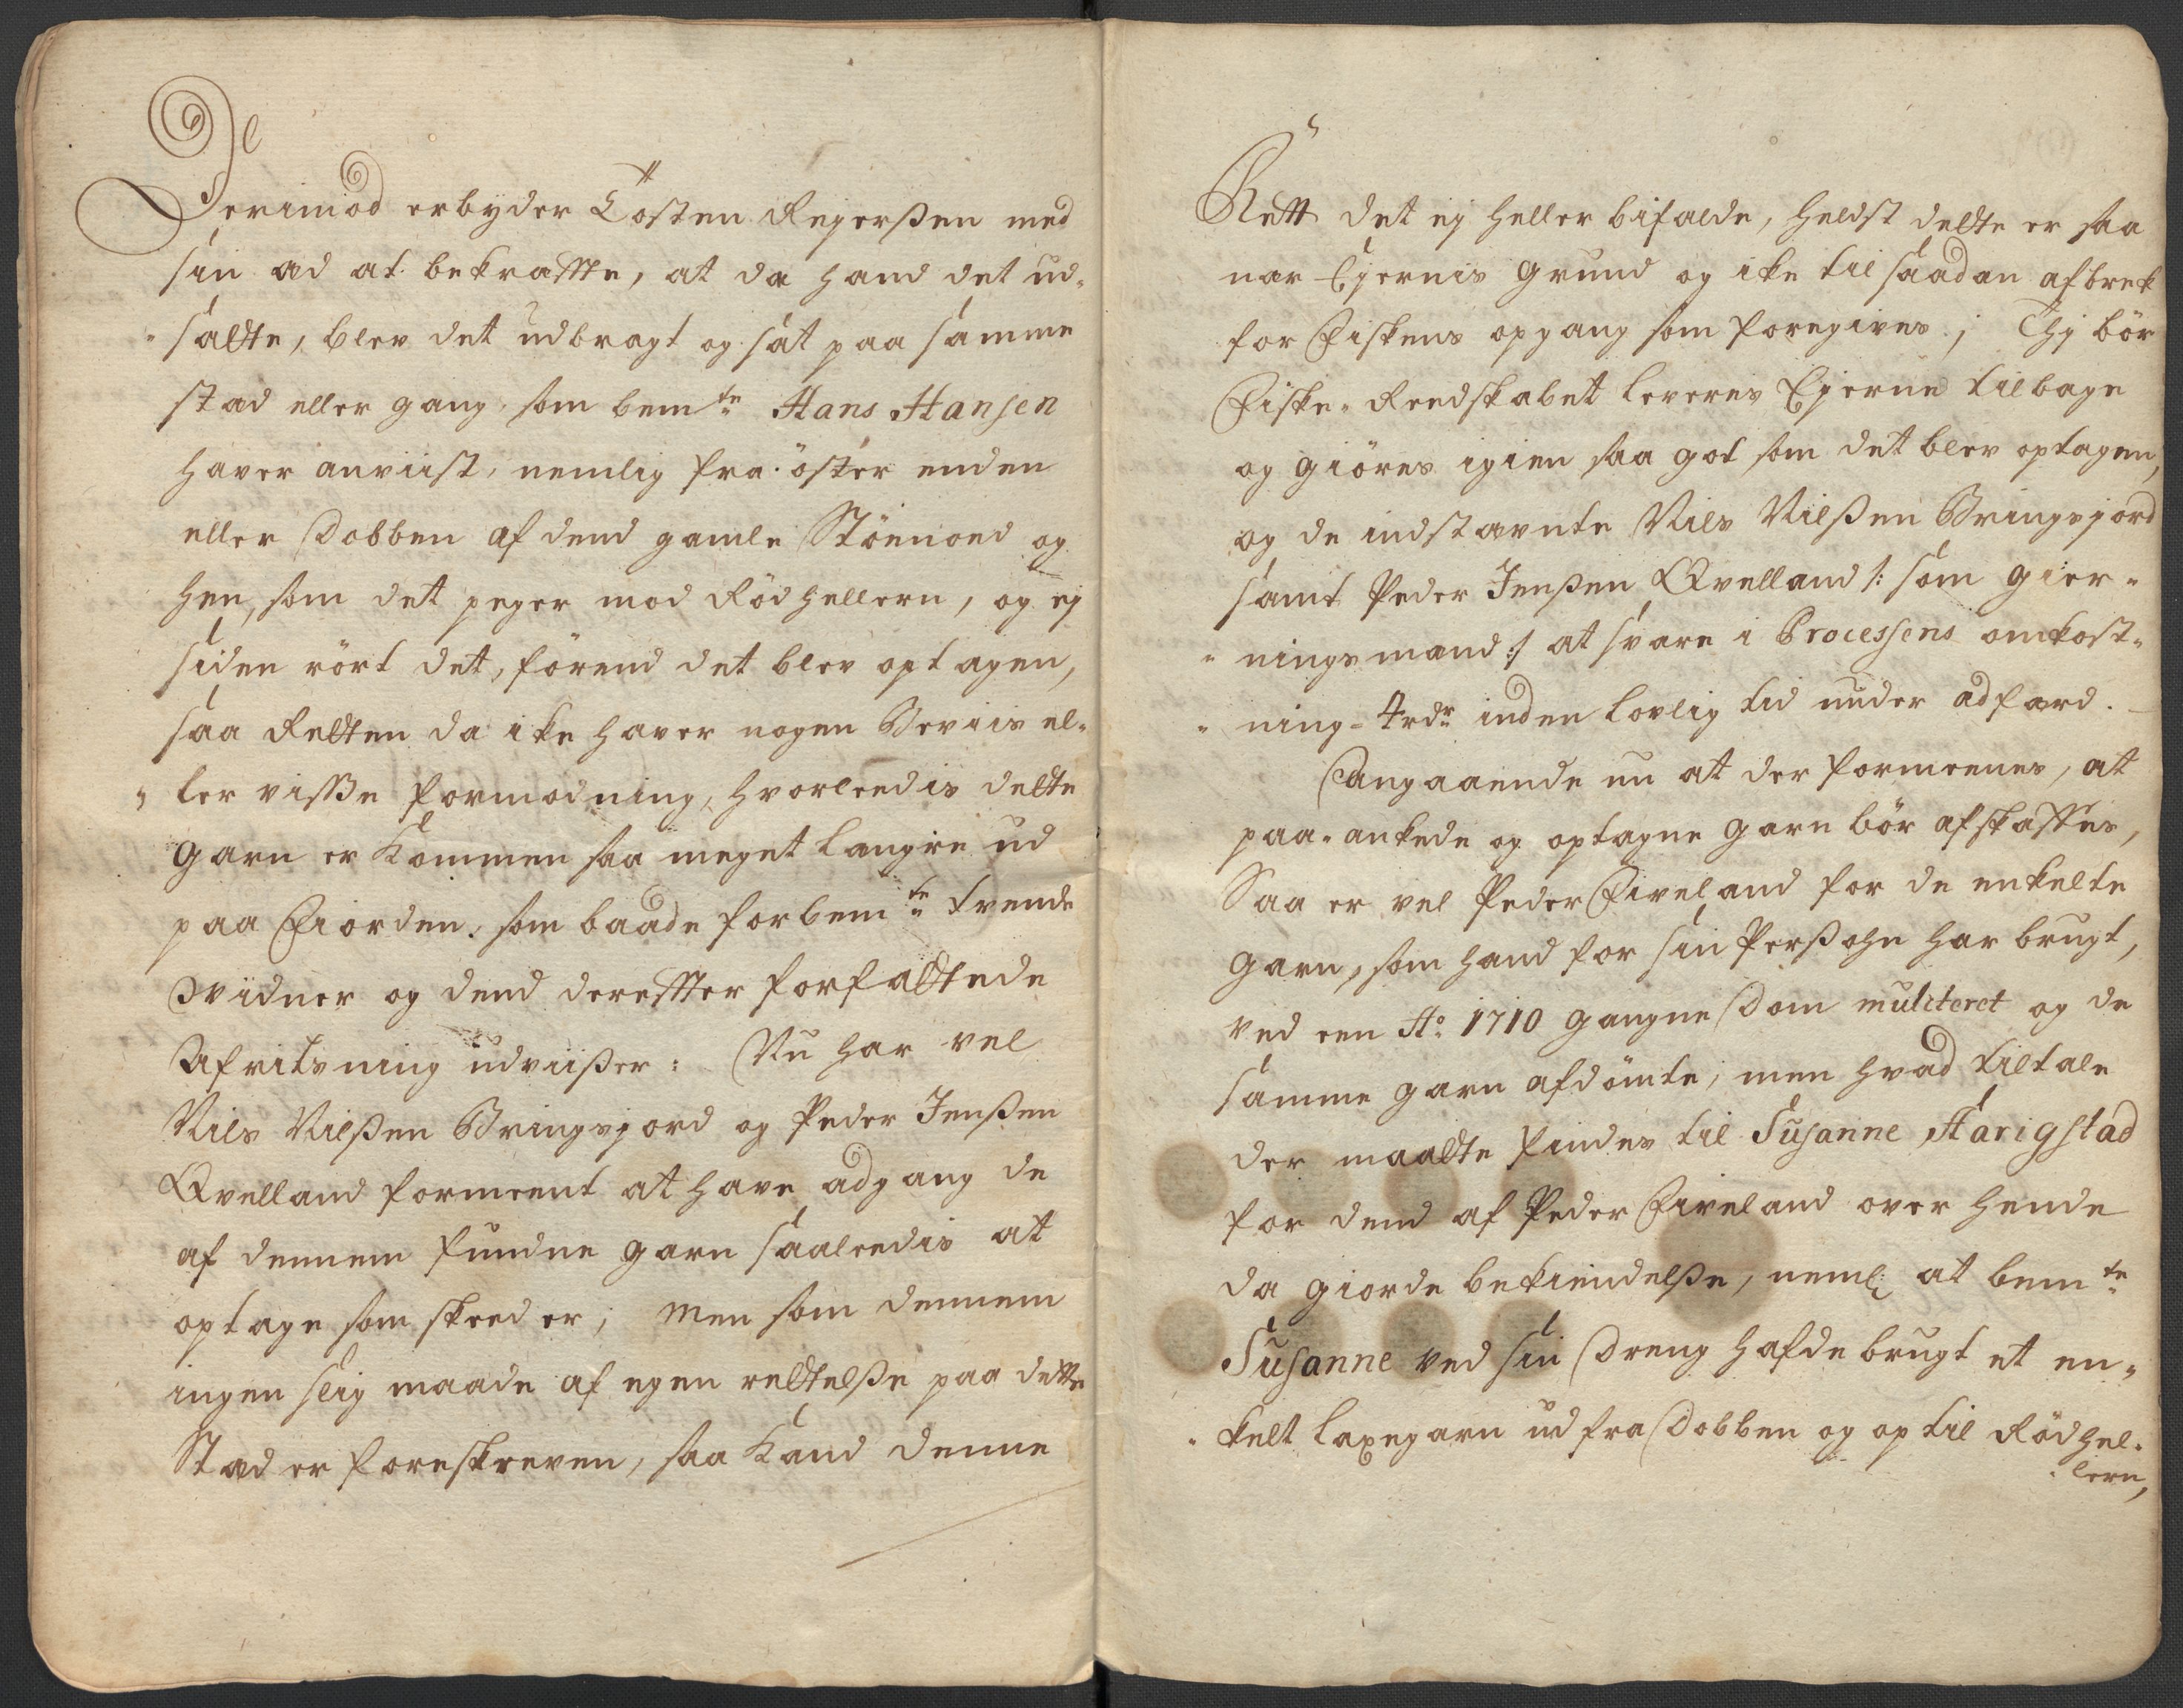 Derimod erbyder Tosten Rejerßen med
sin æd at bekræffte, at da hand det ud-
-sædtte, blev det udbragt og sat paa samme
stæd eller gang, som bem.te Hans Hansen
haver anviist, nemlig fra öster enden
eller Nobben af dend gamle Stöenoed og
hen, som det peger mod Rödhellern, og ej
siden rört det, förend det blev optagen,
saa Retten da ike haver nogen Beviis el-
-ler visse formodning, hvorleedis dette
garn er kommen saa meget længre ud
paa Fiorden, som baade forbem.te tvende
Vidner og dend dereffter forfattede
Afridsning udviißer: Nu har vel
Nils Nilßen Bringsjord og Peder Jenßen
Qvelland formeent at have adgang de
af dennem fundne garn saaleedis at
optage som skeed er; men som dennem
ingen slig maade af egen rettelße paa dette
Stæd er foreskreven, saa kand denne
Rett det ej heller bifalde, heldst dette er saa
nær Ejernis grund og ike til saadan afbrek
for Fiskens opgang som foregives; Thj bör
Fiske-Reedskabet leveres Ejerne tilbage
og giöres igien saa got som det blev optagen,
og de indstævnte Nils Nilßen Bringsjord
samt Peder Jenßen Qvelland /: som gier-
-ningsmænd :/ at svare i Processens omkost-
-ning 4 rdr inden lovlig tid under adfærd.
Angaaende nu at der formeenes, at
paa-ankede og optagne garn bör afskaffes,
Saa er vel Peder Fiveland for de enkelte
garn, som hand for sin Perßohn har brugt,
ved een A.o 1710 gangne Dom mulcteret og de
samme garn afdömte, men hvad tiltale
der maatte findes til Susanne Harigstad
for dend af Peder Fiveland over hende
da giorde bekiendelße, neml: at bem.te
Susanne ved sin Dreng hafde brugt et en-
-kelt laxegarn ud fra Nobben og op til Rödhel-
-lern,